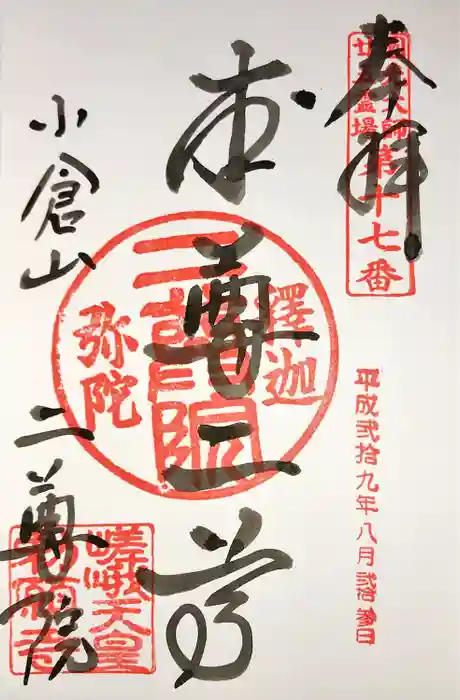 奉拝
圓光大師
廿五霊場
第十七番
平成弐拾九年八月弐拾参日
本尊二尊
釋迦
二尊院
弥陀
小倉山
二尊院
嵯峨天皇
勅願寺